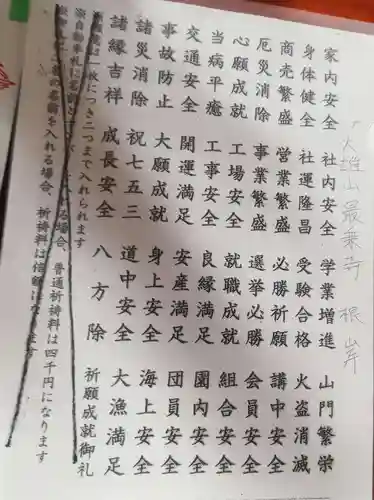 大雄山最乗寺 根岸
家内安全 社内安全 学業増進 山門繁栄
身体健全 社運隆昌 受験合格 火盗消滅
商売繁盛 営業繁盛 必勝祈願 講中安全
厄災消除 事業繁盛 選挙必勝 会員安全
心願成就 工場安全 就職成就 組合安全
当病平癒 工事安全 良縁満足 園内安全
交通安全 開運満足 安産満足 団員安全
事故防止 大願成就 身上安全 海上安全
諸災消除 祝七五三 道中安全 大漁満足
諸縁吉祥 成長安全 八方除 祈願成就御札
一枚につき二つまで入れられます
※自動車札に名前を入れる場合、普通祈祷料は四千円になります
の名前を入れる場合、祈祷料は倍額になります